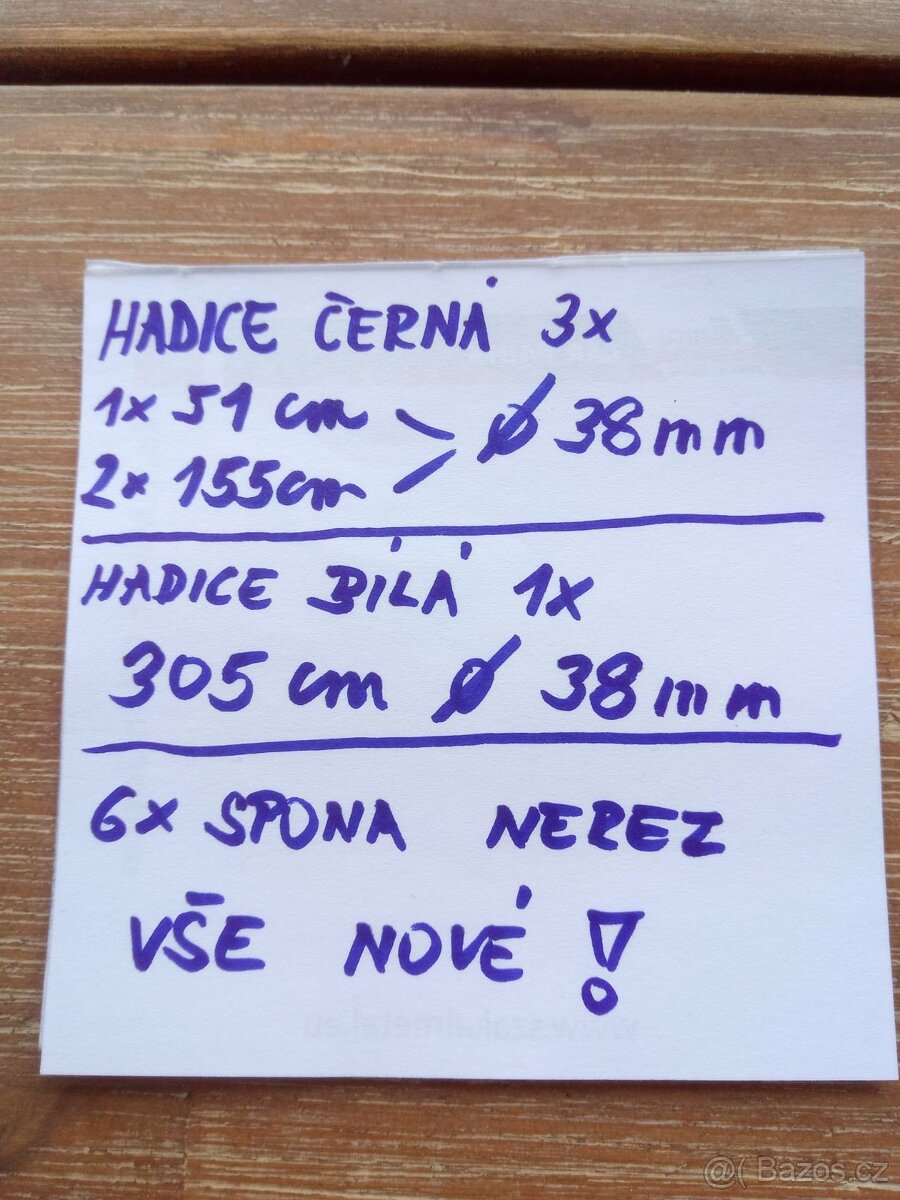 HADICE ČERNÁ 3x
1x 51 cm
2x 155cm
ø 38mm
HADICE BÍLÁ 1x
305 cm ø 38mm
6x SPONA NEREZ
VŠE NOVÉ!
@( Bazos.cz